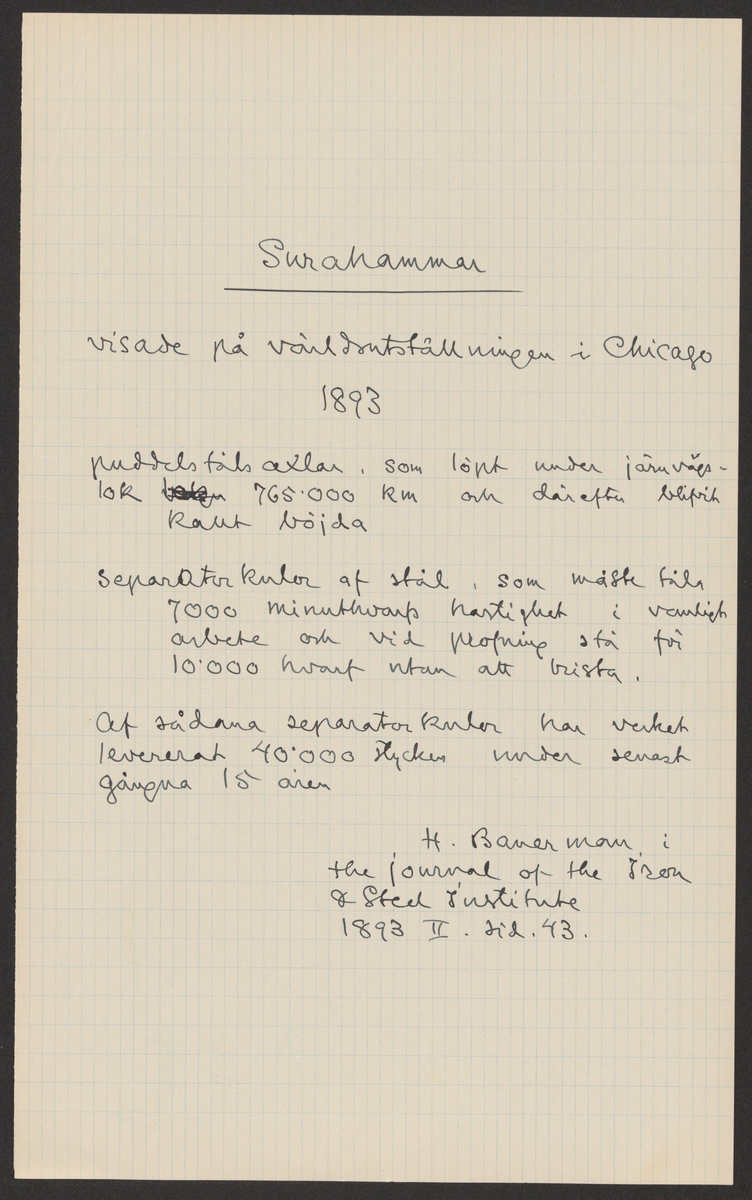 Surahammar
visade på världsutställningen i Chicago
1893
puddelstålsaxlar, som löpt under järnvägs-
lok 765.000 km och därefter blifvit
kallt böjda
separatorkulor af stål, som måste tåla
7000 minuthvarfs hastighet i vanligt
arbete och vid profning stå för
10.000 hvarf utan att brista.
Af sådana separatorkulor har verket
levererat 40.000 stycken under senast
gångna 15 åren
H. Bauerman, i
the journal of the Iron
& Steel Institute
1893 II. sid. 43.